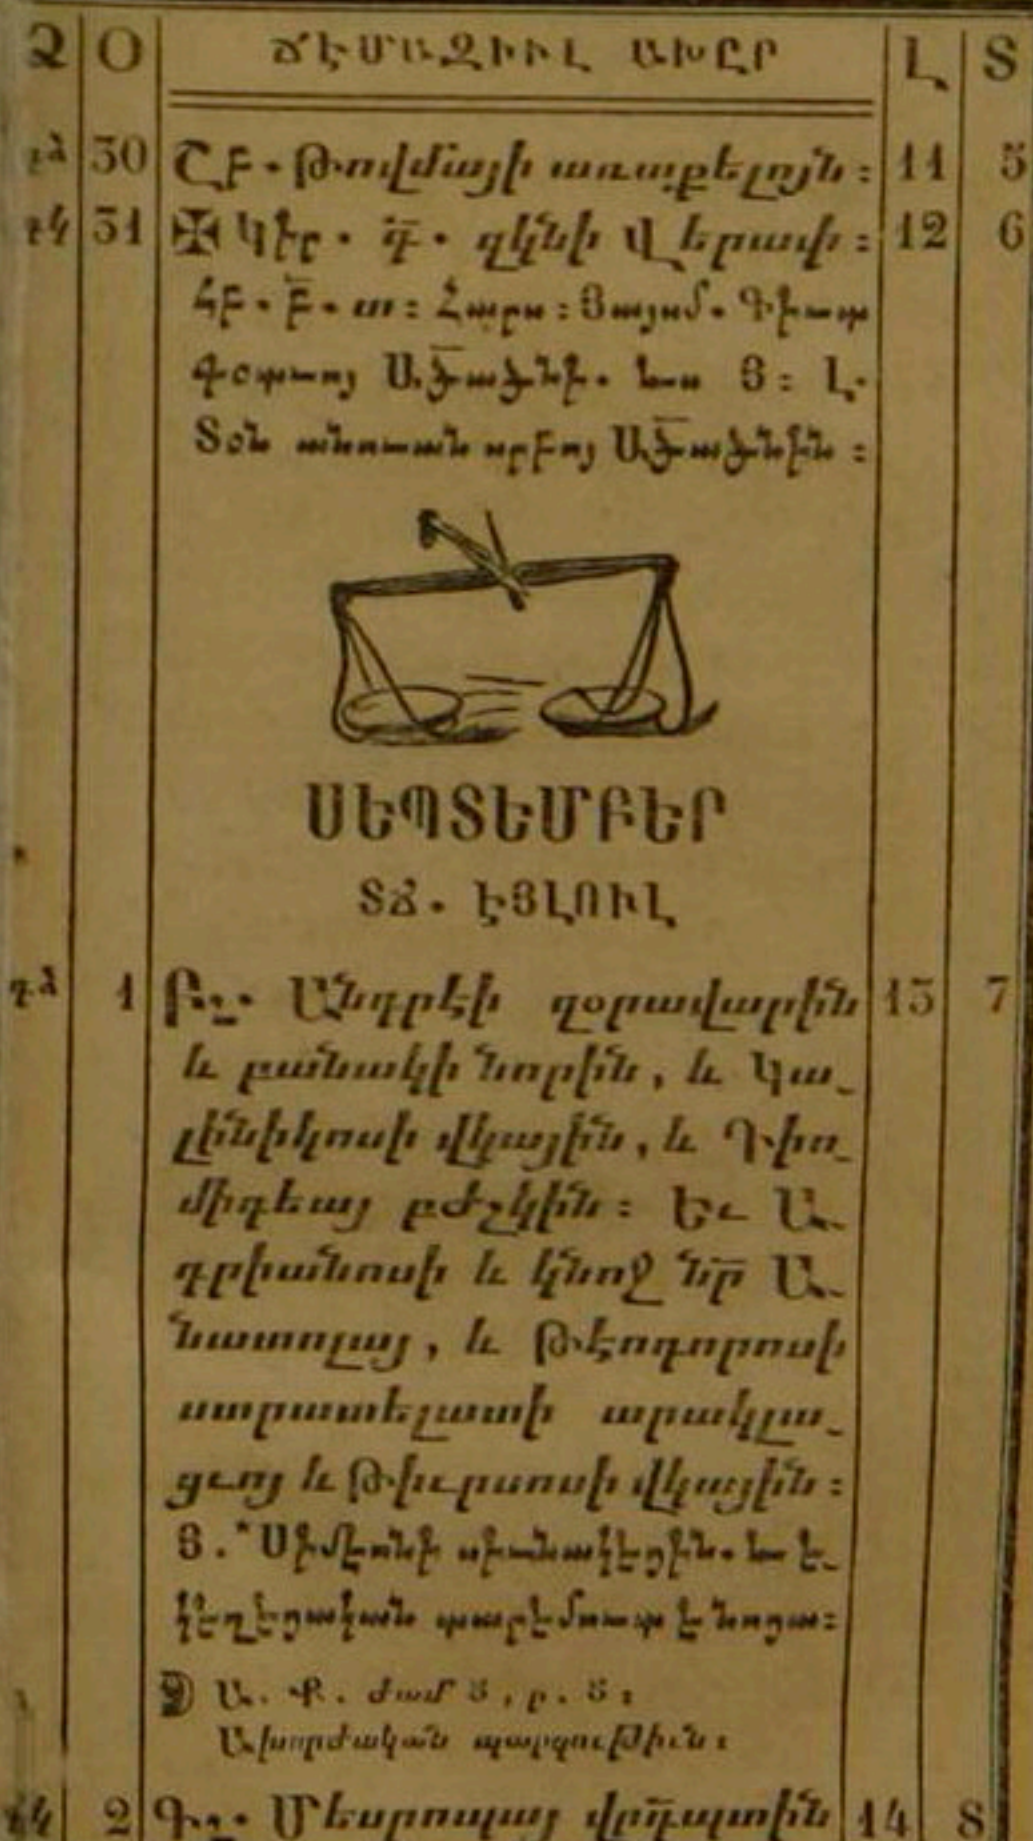 Ձ Օ ՃԷՄԱԶԻԻԼ ԱԽԸՐ Լ Տ
30 ՇԲ. Թովմայի առաքելոյն: 11 5
31 ✠ Կիր. դ. զկնի Վերափ: 12 6
ՀԲ. Բ. տ: Հարս: Յայսմ.
Ա՟ծածնի. Յ: Լ.
Տօն սրբոյ Ա՟ծածնին:
ՍԵՊՏԵՄԲԵՐ
ՏՃ. ԷՅԼՈՒԼ
դձ 1 Բշ. Անդրէի զօրավարին 13 7
և բանակի նորին, և Կա֊
լինիկոսի վկային, և Դիո֊
միդեայ բժշկին: Եւ Ա֊
դրիանոսի և կնոջ նր̅ Ա֊
նատոլայ, և Թէոդորոսի
ստրատելատի արակլա֊
ցւոյ և Թիւրսոսի վկային:
Յ. *Սիմէոնի սիւնակեցին. նա է֊
կեղեցական նոցա:
Ա. Ք. ժամ 5, ր. 5:
Ախորժական պարզութիւն:
2 Գշ. Մեսրոպայ 14 Տ